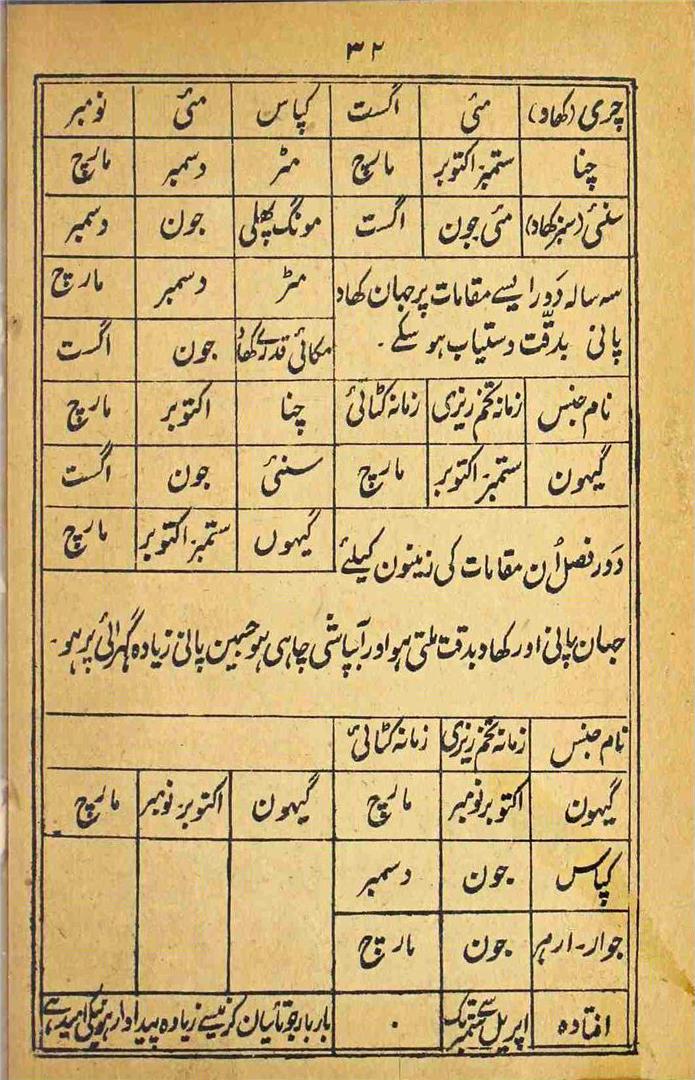 ۳۲
چری (کھاد) مئی اگست کپاس مئی نومبر
چنا ستمبر اکتوبر مارچ مٹر دسمبر مارچ
سنئی (سبز کھاد) مئی جون اگست مونگ پھلی جون دسمبر
سہ سالہ دَور ایسے مقامات پر جہان کھاد مٹر دسمبر مارچ
پانی بدقّت دستیاب ہو سکے۔ مکائی قدرے کھاد جون اگست
نام جنس زمانہ تخم ریزی زمانہ کٹائی چنا اکتوبر مارچ
گیہون ستمبر اکتوبر مارچ سنئی جون اگست
دَور فصل اُن مقامات کی زمینون کیلئے گیہوں ستمبر اکتوبر مارچ
جہان پانی اور کھاد بدقت ملتی ہو اور آبپاشی چاہی ہو جسمین پانی زیادہ گہرائی پر ہو۔
نام جنس زمانہ تخم ریزی زمانہ کٹائی
گیہون اکتوبر نومبر مارچ گیہون اکتوبر نومبر مارچ
کپاس جون دسمبر
جوار۔ ارہر جون مارچ
افتادہ اپریل سے ستمبر تک ۰ بار بار جوتائیان کرنیسے زیادہ پیداوار ہونیکی امید ہے